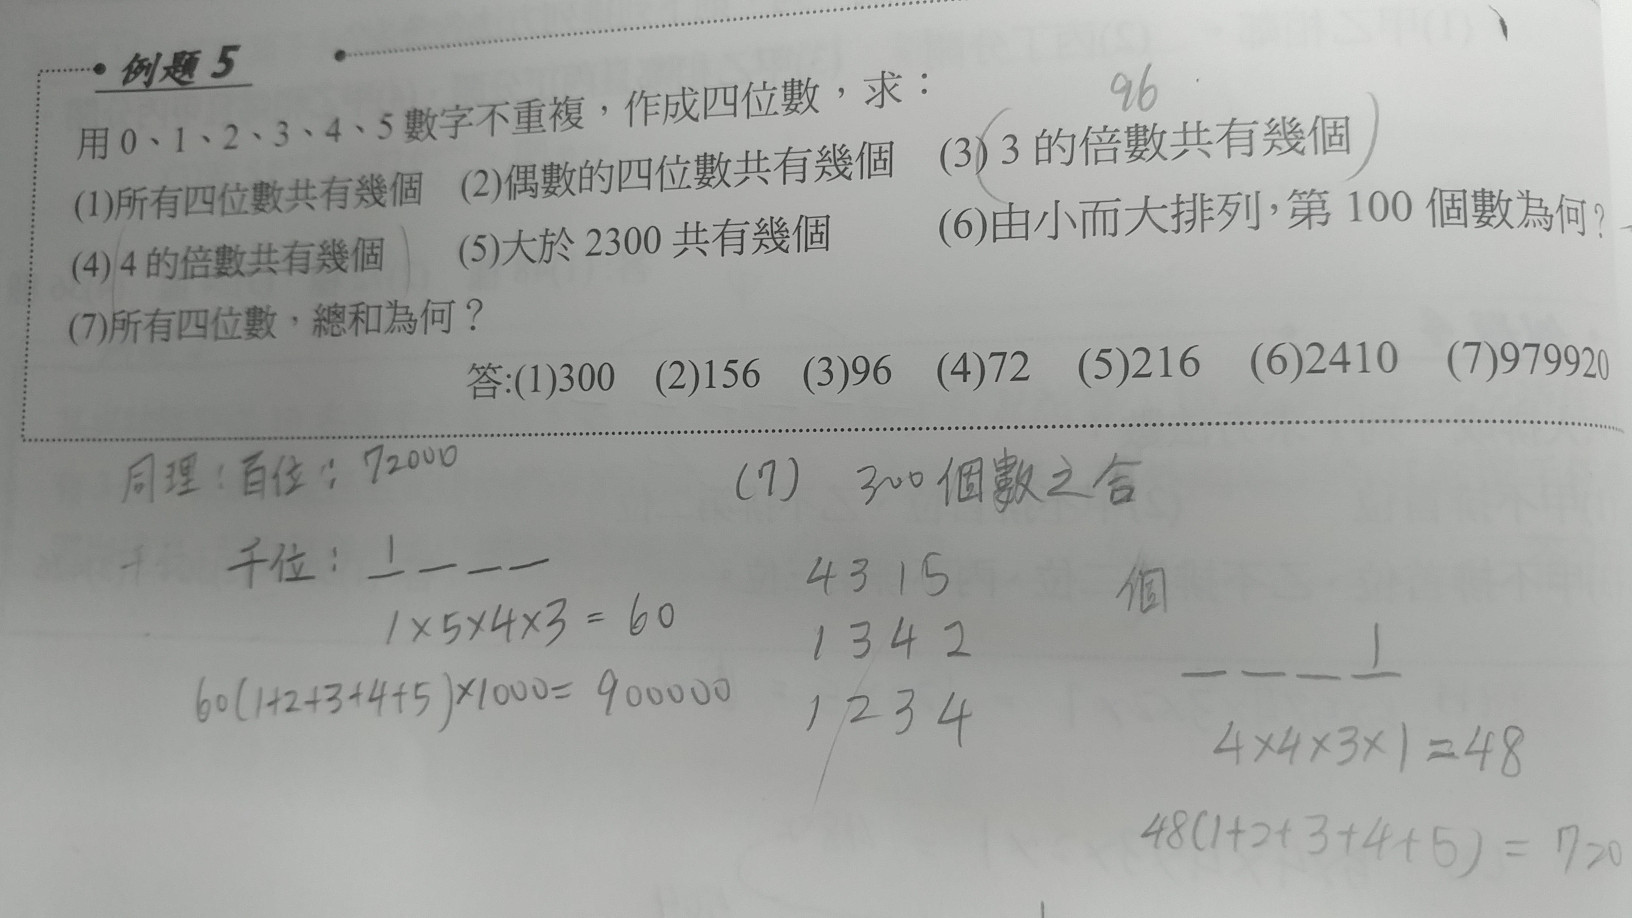 例題5
用0、1、2、3、4、5數字不重複，作成四位數，求：
96
(1)所有四位數共有幾個 (2)偶數的四位數共有幾個 (3) 3的倍數共有幾個
(4) 4的倍數共有幾個 (5)大於2300共有幾個 (6)由小而大排列，第100個數為何？
(7)所有四位數，總和為何？
答:(1)300 (2)156 (3)96 (4)72 (5)216 (6)2410 (7)979920
同理：百位：72000
千位：1
1×5×4×3=60
60(1+2+3+4+5)×1000=900000
(7) 300個數之合
4315
1342
1234
個
1
4×4×3×1=48
48(1+2+3+4+5)=720